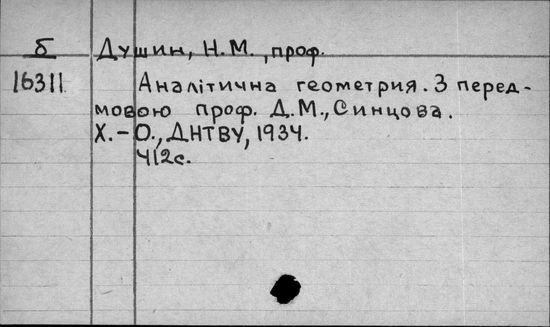 Б Душин, Н.М., проф.
16311 Аналітична геометрия. З перед-
мовою проф. Д.М., Синцова.
Х.-О., ДНТВУ, 1934.
412с.